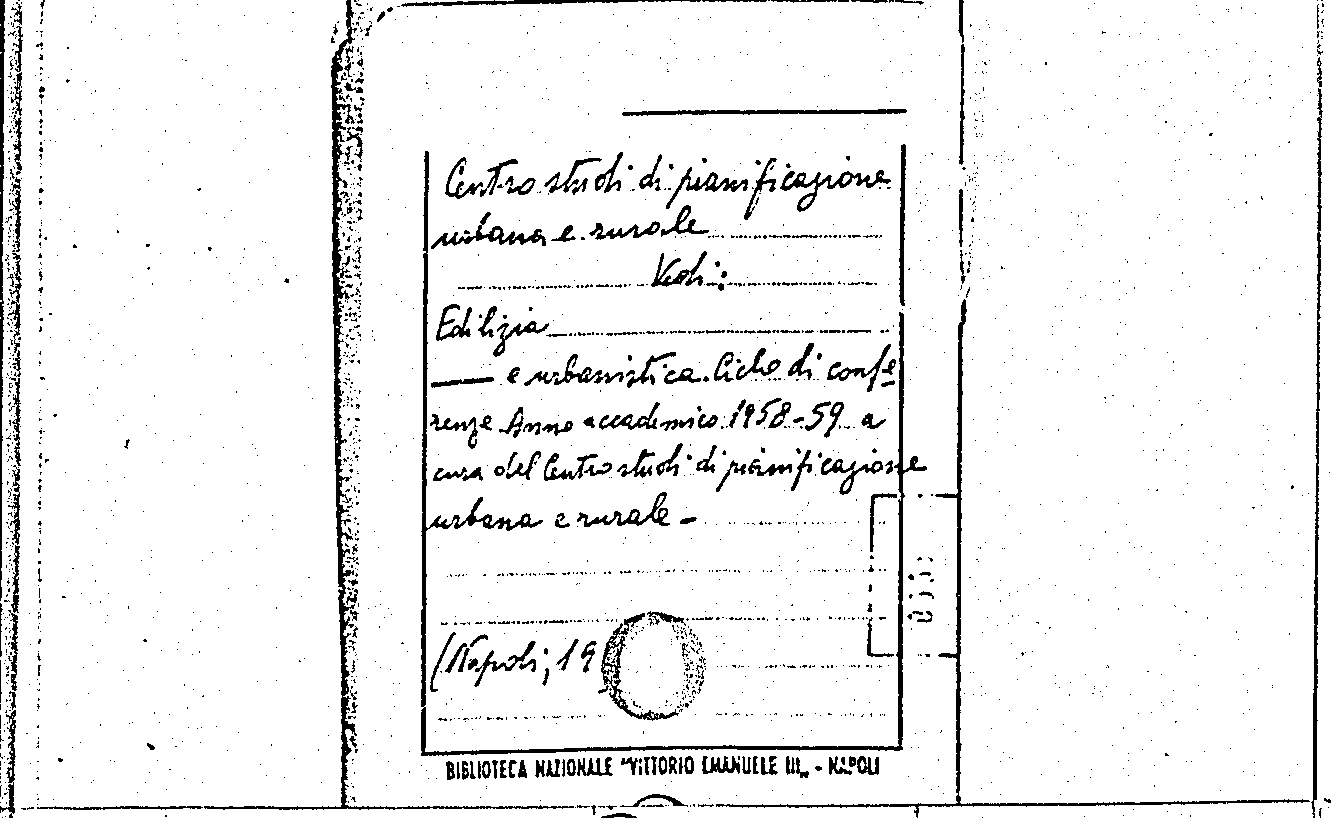 Centro studi di pianificazione
urbana e rurale
Vedi:
Edilizia
—— e urbanistica. Ciclo di confe
renze Anno accademico 1958-59 a
cura del Centro studi di pianificazione
urbana e rurale -
(Napoli, 19
BIBLIOTECA NAZIONALE "VITTORIO EMANUELE III„ - NAPOLI